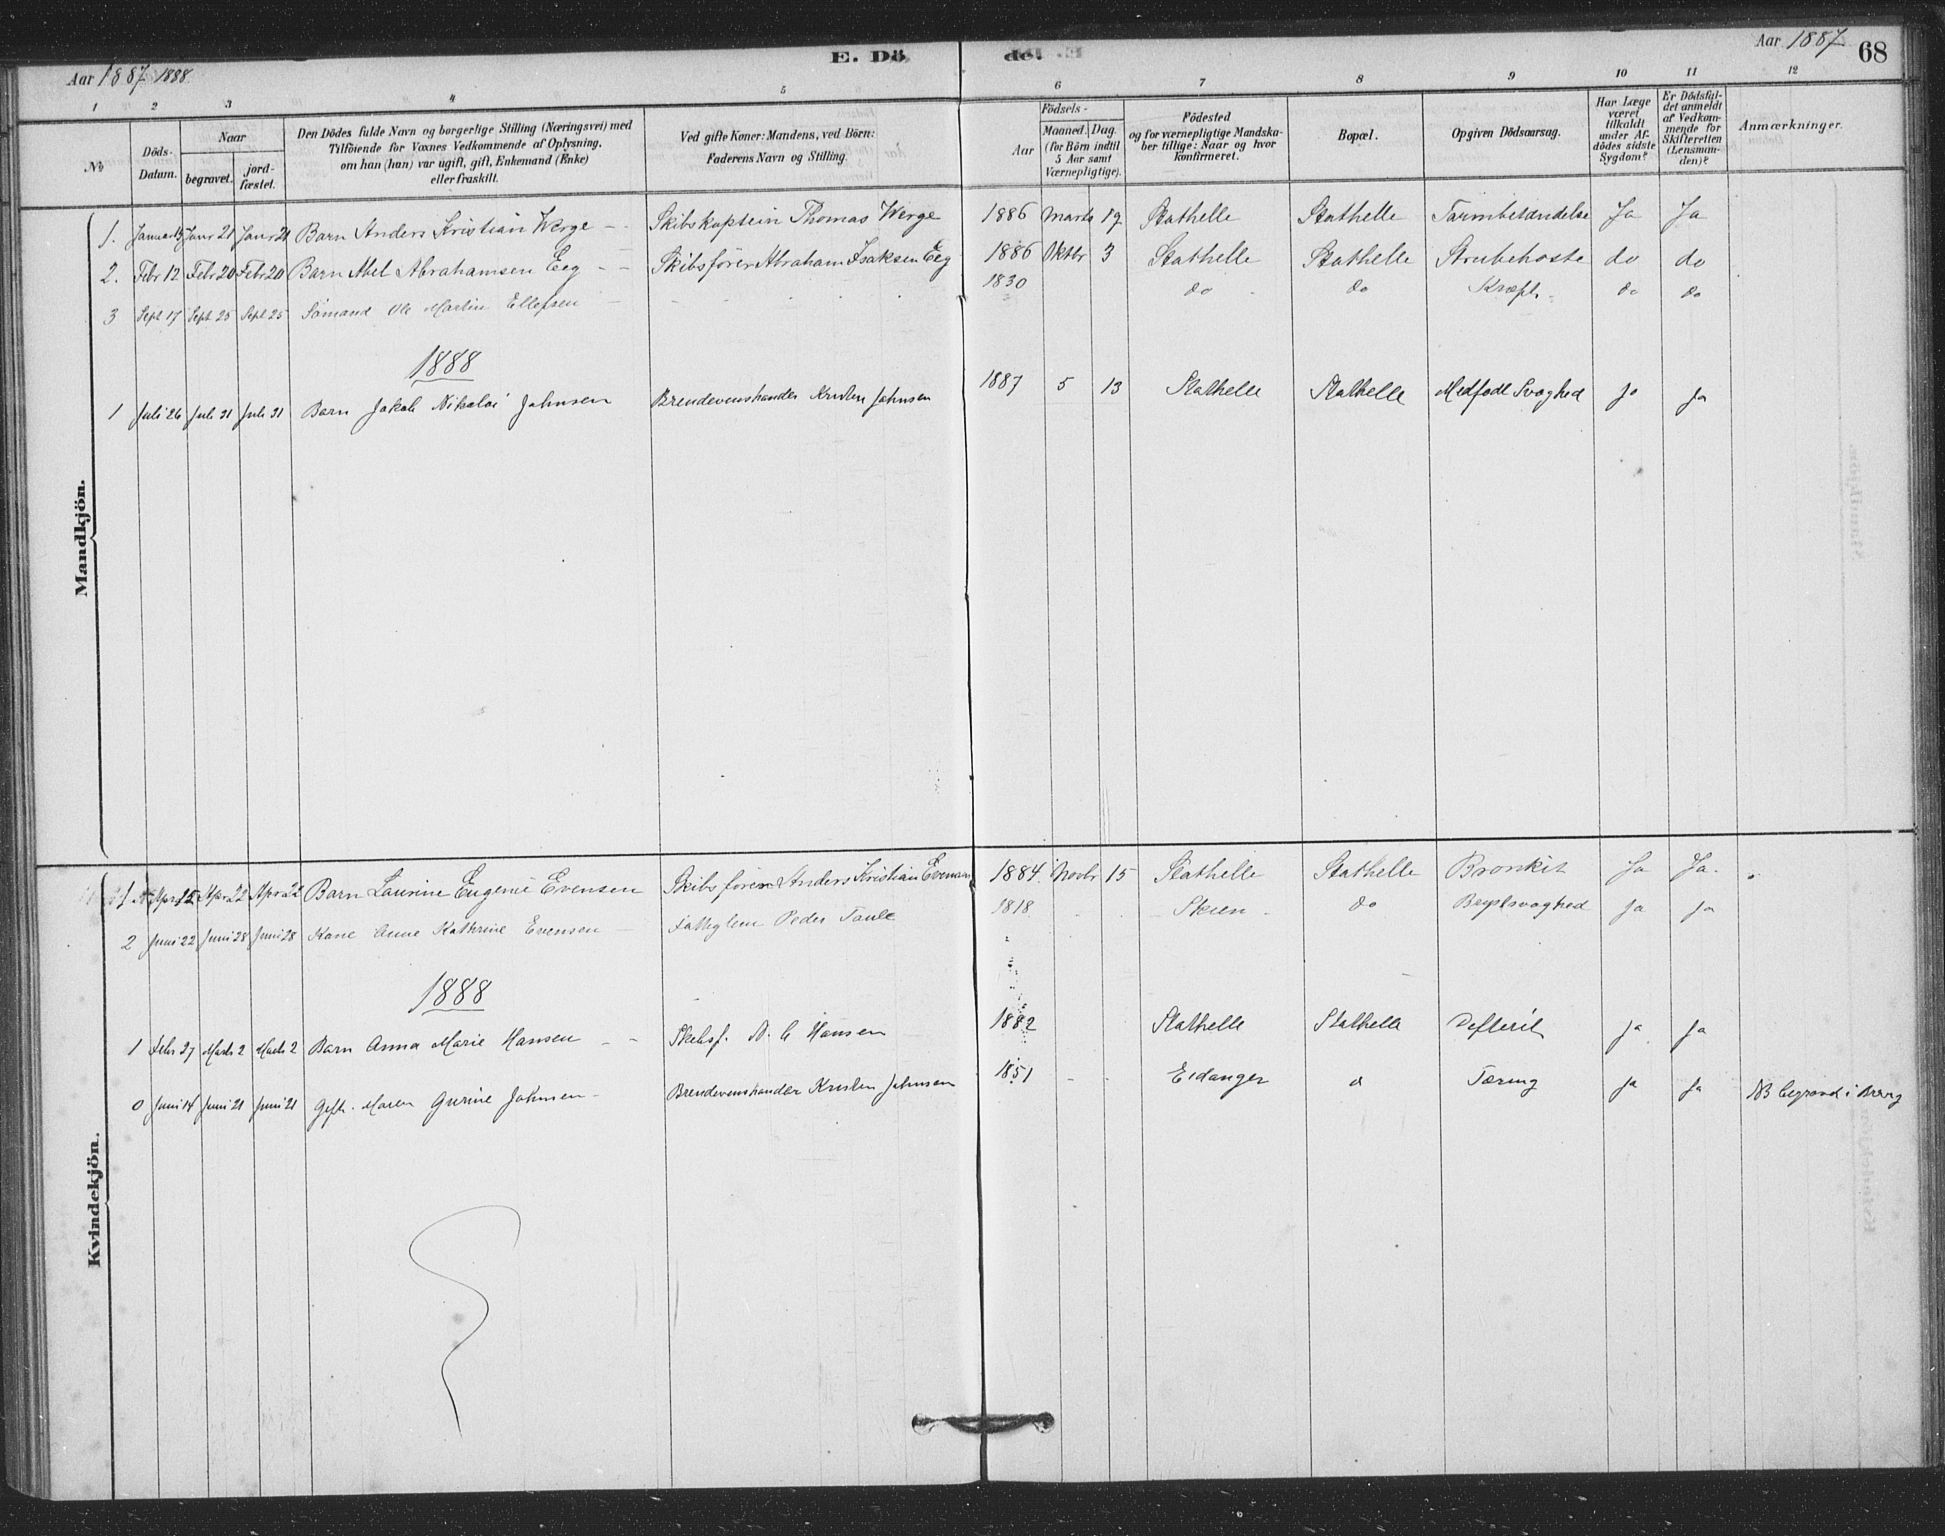 Aar 1887. 1888.
E. Dö
de.
Aar 1887
68
1 2 3 4 5 6 7 8 9 10 11 12
No
Döds-Datum.
Naar
begravet.
jord-fæstet.
Den Dödes fulde Navn og borgerlige Stilling (Næringsvei) med
Tilföiende for Voxnes Vedkommende af Oplysning,
om han (hun) var ugift, gift, Enkemand (Enke)
eller fraskilt.
Ved gifte Koner: Mandens, ved Börn:
Faderens Navn og Stilling.
Födsels-
Aar
Maaned. Dag.
(for Börn indtil
5 Aar samt
Værnepligtige).
Födested
og for værnepligtige Mandska-
ber tillige: Naar og hvor
konfirmeret.
Bopæl.
Opgiven Dödsaarsag.
Har Læge
været
tilkaldt
under Af-
dödes sidste
Sygdom?
Er Dödsfal-
det anmeldt
af Vedkom-
mende for
Skifteretten
(Lensman-
den)?
Anmærkninger.
Mandkjön.
1. Januar Janr 21 Janr 21 Barn Anders Kristian Werge - - Skibskaptein Thomas Werge 1886 Marts 19 Stathelle Stathelle Tarmbetændelse Ja Ja
2. Febr 12 Febr 20 Febr 20 Barn Abel Abrahamsen Eeg - - Skibsfører Abraham Isaksen Eeg 1886 Oktbr 3 Stathelle Stathelle Strubehoste do do
3 Sept 17 Sept 25 Sept 25 Sömand Ole Martin Ellefsen - 1830 do do Kræft do do
1888
1 Juli 26 Juli 31 Juli 31 Barn Jakob Nikolai Johnsen Brendevenshandler Kristen Johnsen 1887 5 13 Stathelle Stathelle Medfødt Svaghed Ja Ja
Kvindekjön.
1 Apr 15 Apr 22 Apr 22 Barn Laurine Eugenie Evensen Skibsfører Anders Kristian Evensen 1884. Novbr 15 Stathelle Stathelle Bronkit Ja Ja.
2 Juni 22 Juni 28 Juni 28 Kone Anne Kathrine Evensen - Peder 1818 Skien do Brystsvaghed Ja Ja
1888
1 Febr 27 Marts 2 Marts 2 Barn Anna Marie Hansen - - Skibsf. N. C Hansen 1882 Stathelle Stathelle Defterit Ja Ja
0 Juni 14 Juni 21 Juni 21 Gift. Maren Gurine Johnsen - Brendevenshandler Kristen Johnsen 1851 - - Eidanger d Tæring Ja Ja NB begravet i Brevig